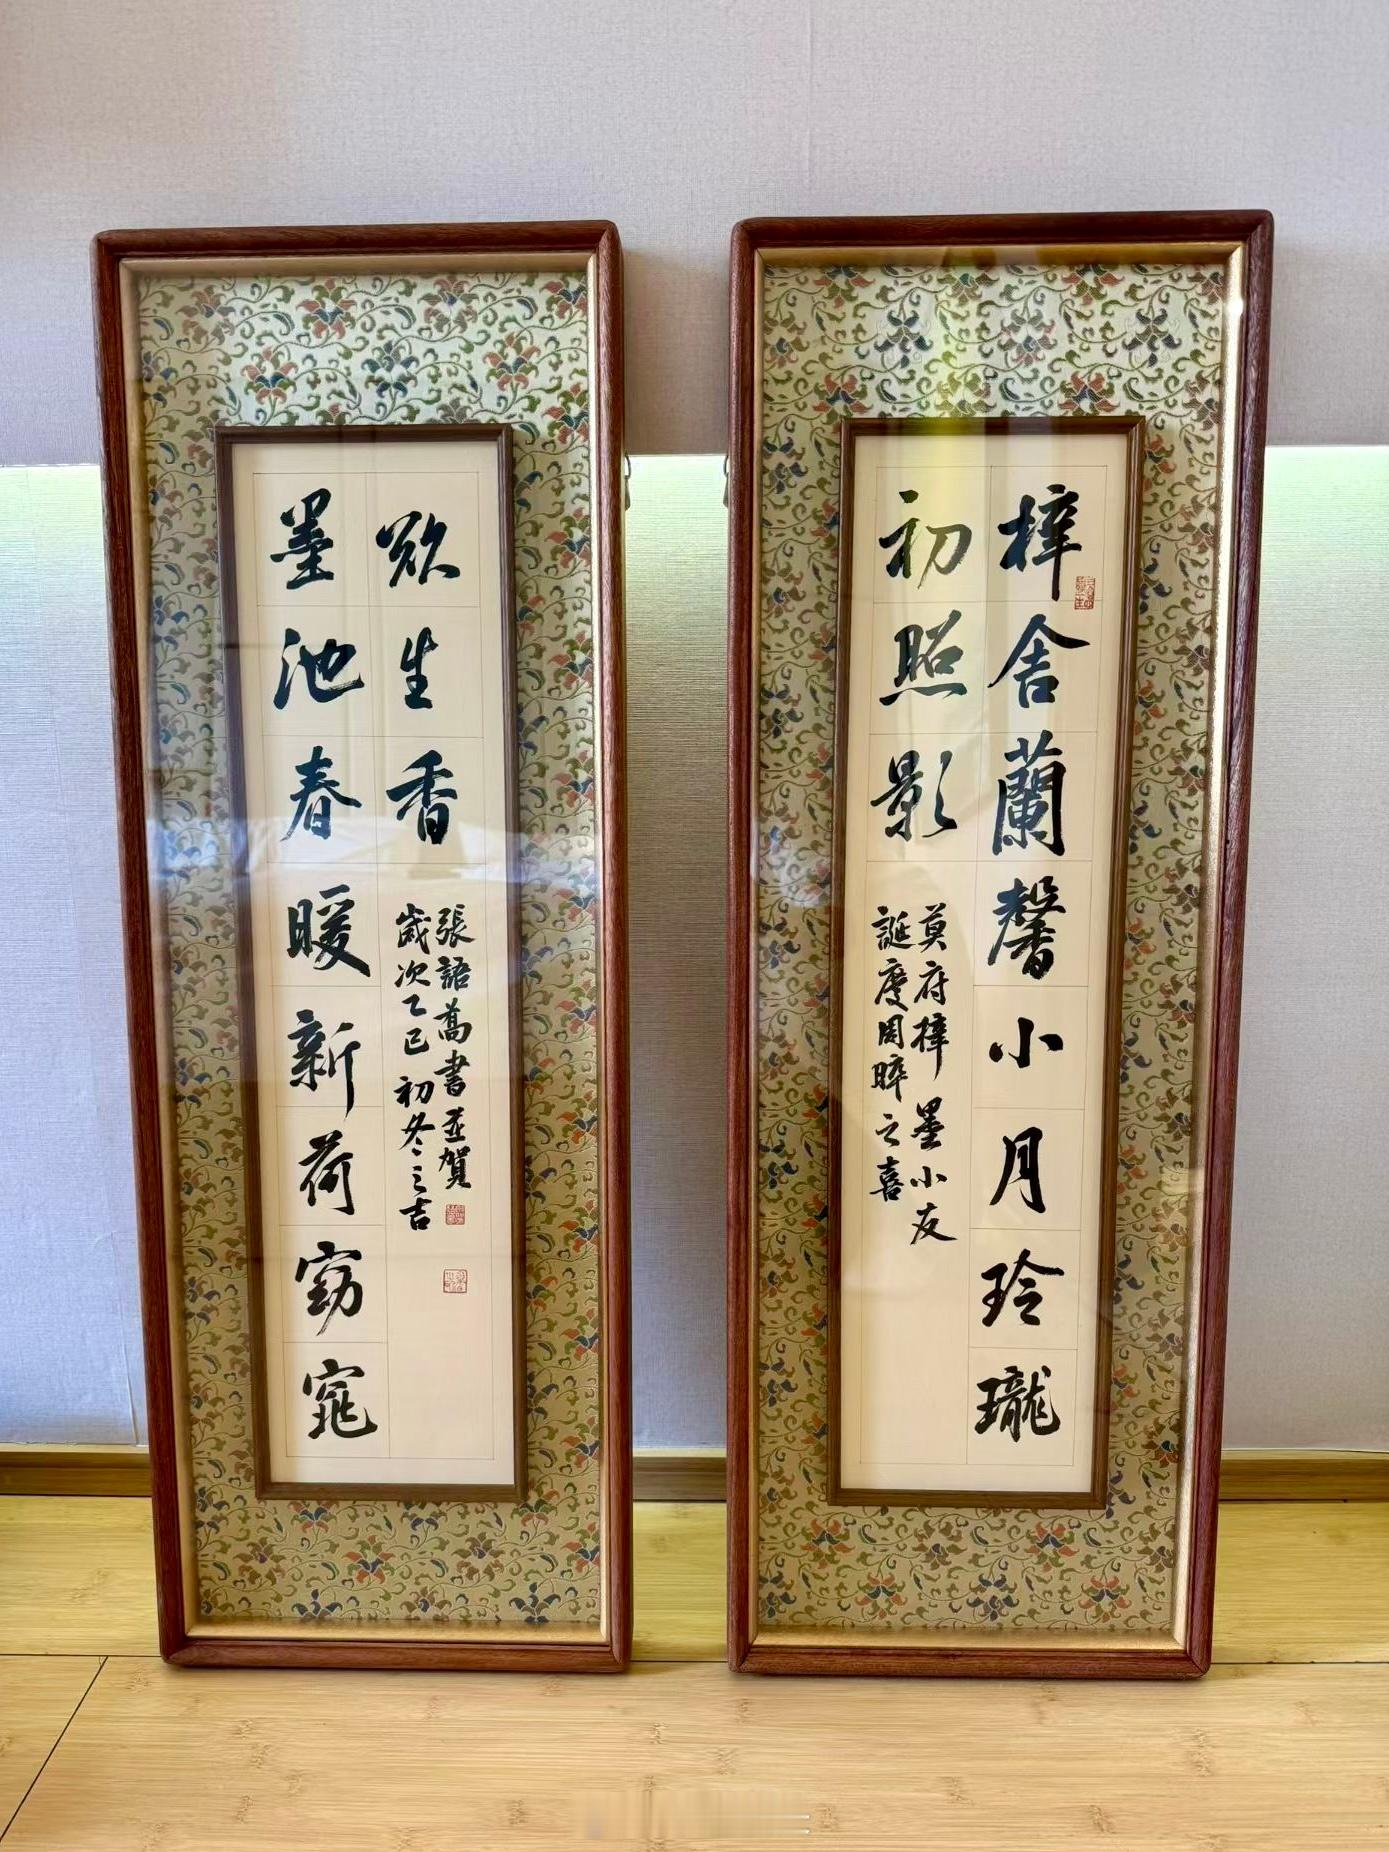 梓舍蘭馨小月玲瓏
初照影
莫府梓墨小友
誕度周晬之喜
墨池春暖新荷窈窕
欲生香
歲次乙巳初冬之吉
張語蒿書並賀